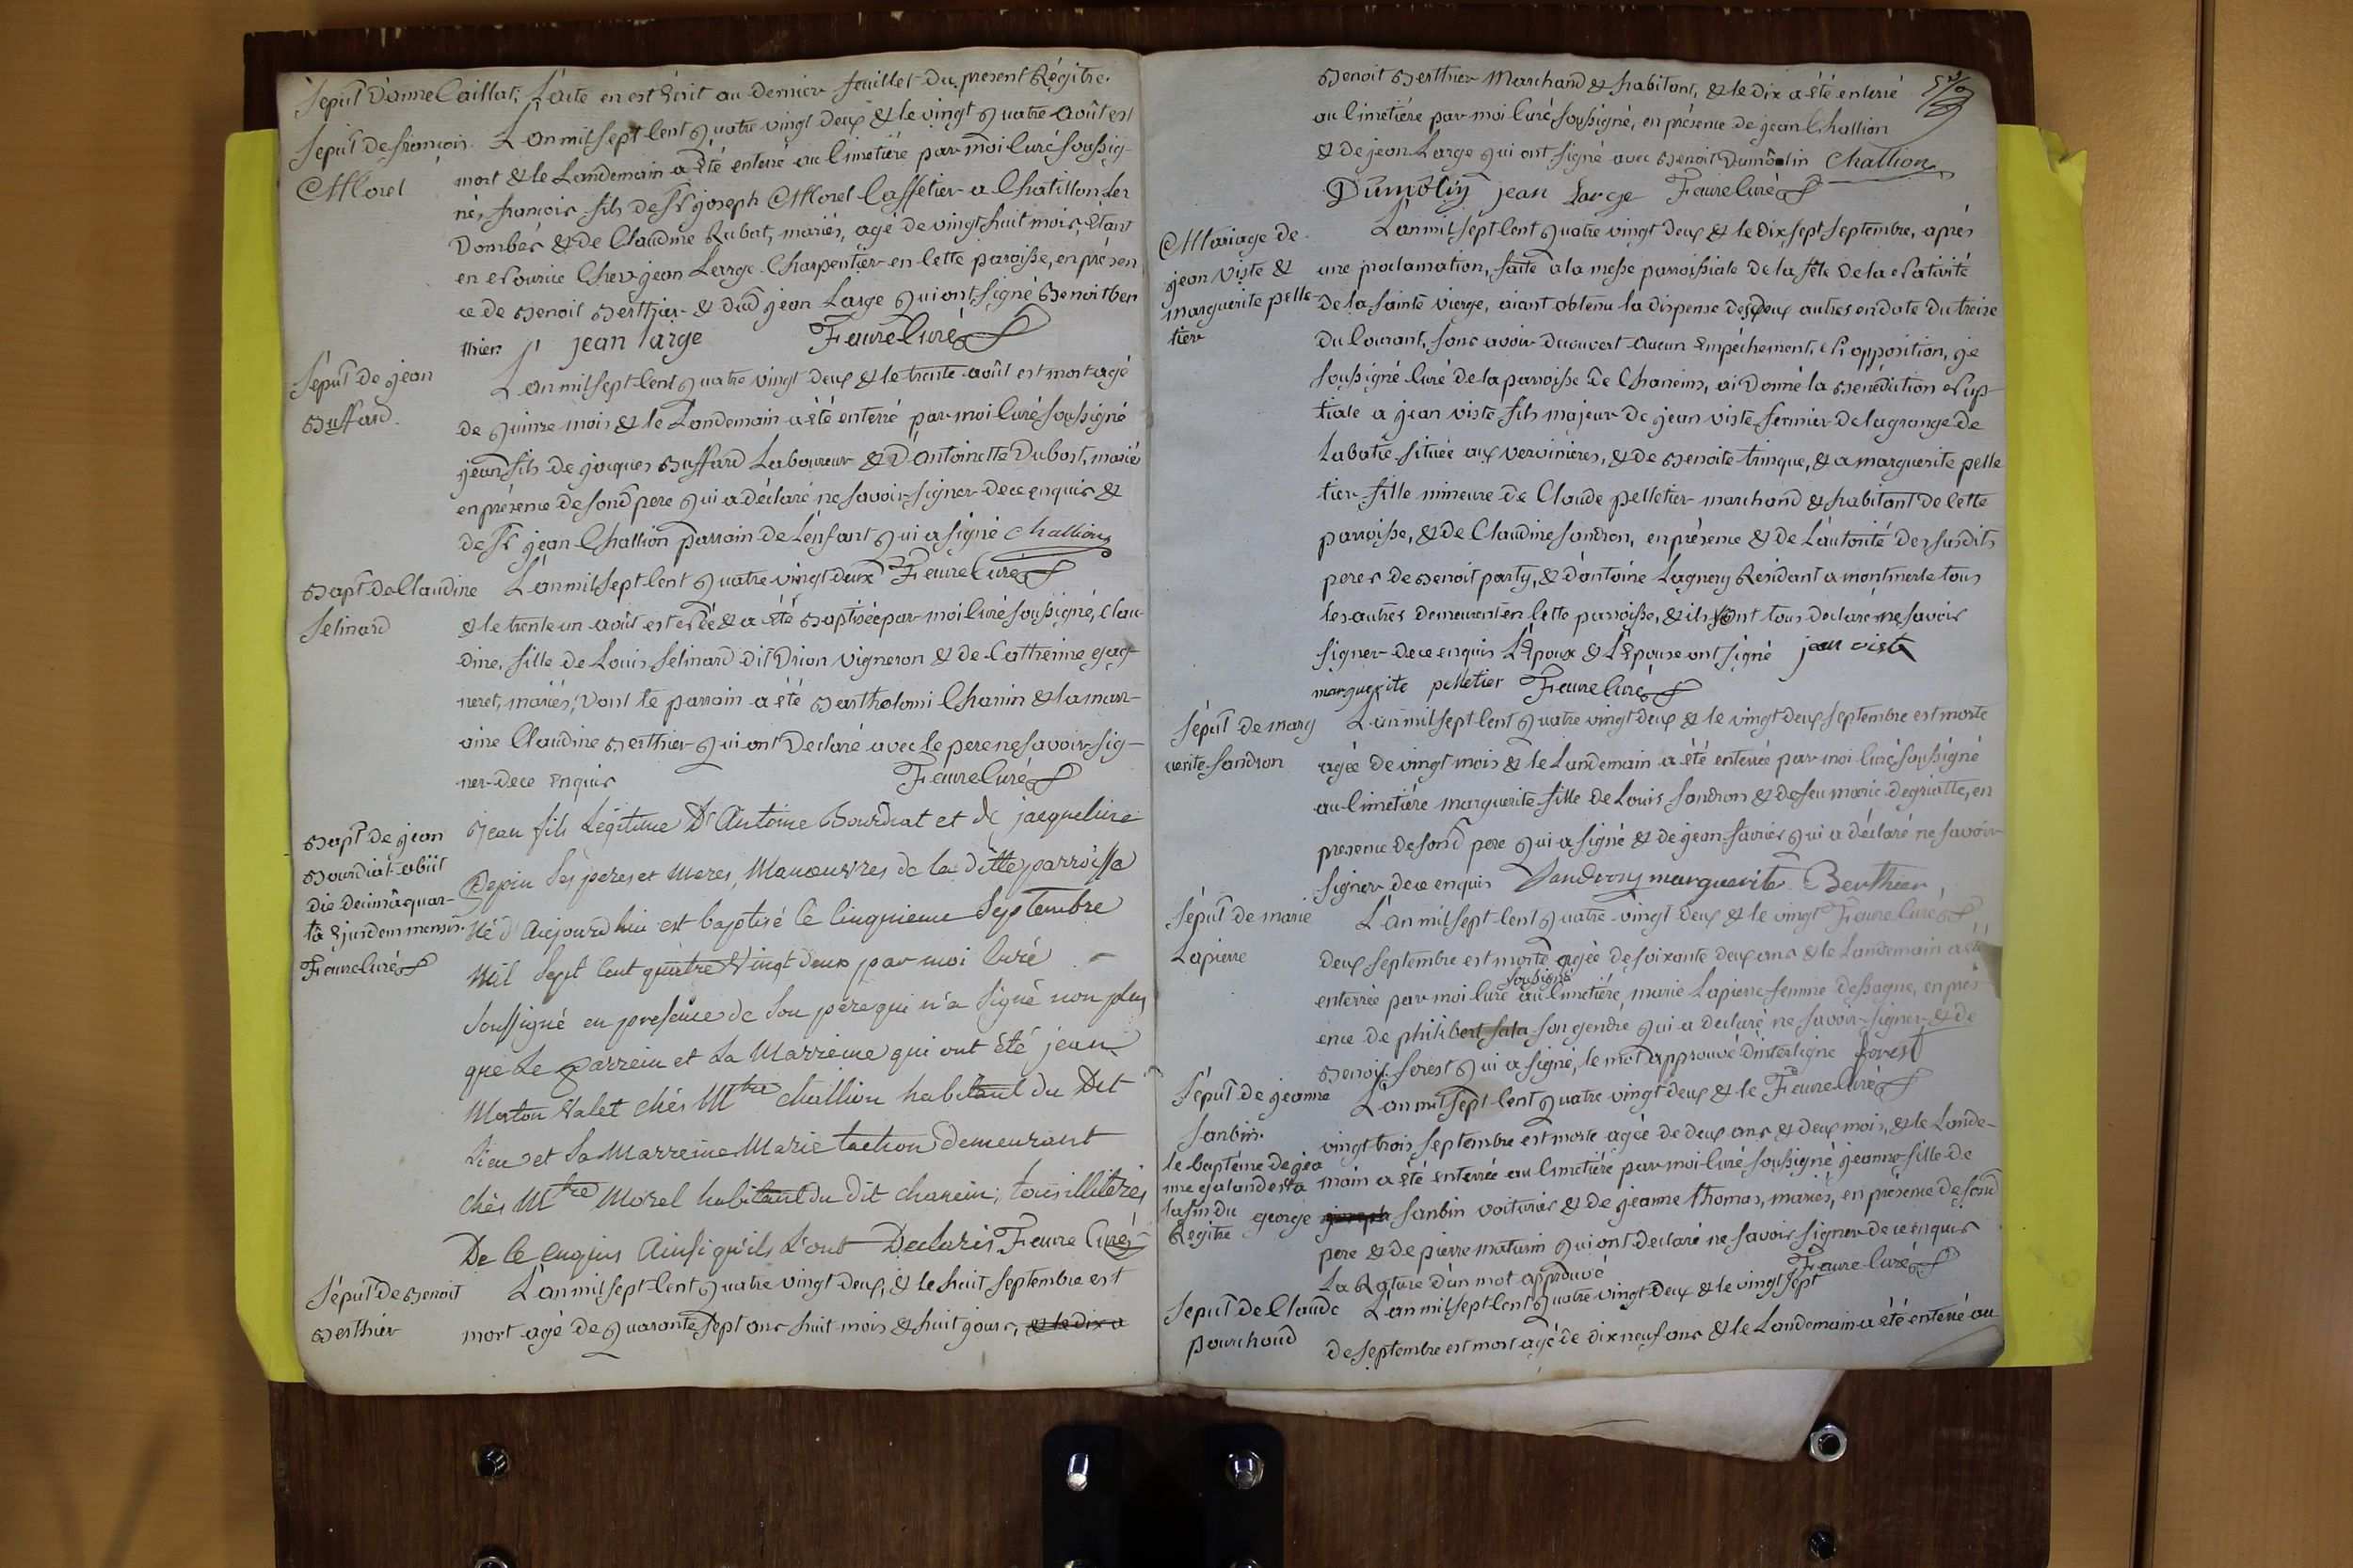 Sepul d'anne Caillat, L'acte en est Ecrit au dernier feuillet du present Régitre.
Sepul de françois
Morel
L'an mil sept Cent quatre vingt deux & le vingt quatre août est
mort & le Landemain a été enterré au Cimetière par moi Curé soussig-
né, françois fils de Sr joseph Morel Caffetier a Chatillon Les
Dombes & de Claudine Rabat, mariés, agé de vingt huit mois, étant
en Nourice Chez jean Large Charpentier en Cette paroisse, en présen
ce de Benoit Berthier & dud jean Large qui ont signé Benoit Ber
thier jean large Feure Curé
Sepul de jean
Buffard.
L'an mil sept Cent quatre vingt deux & le trente août est mort agé
de quinze mois & le Landemain a été enterré par moi Curé soussigné
jean fils de jacques Buffard Laboureur & D'antoinette Dubost, mariés
en présence de sond pere qui a déclaré ne savoir signer de ce enquis &
de Sr jean Challion parrain de L'enfant qui a signé Challion
Bapt de Claudine
Selinard
L'an mil sept Cent quatre vingt deux Feure Curé
& le trente un août est née & a été Baptisée par moi Curé soussigné, Clau-
dine, fille de Louis Selinard dit Drion vigneron & de Catherine gag-
neret, mariés, dont le parrain a été Bartholomi Chanin & la marr-
aine Claudine Berthier qui ont Declaré avec le pere ne savoir sig-
ner de ce enquis Feure Curé
Bapt de jean
Bourdiat abiit
die decimâ quar-
tâ Ejusdem mensis.
Feure Curé
Jean fils Legitime D'Antoine Bourdiat et de jacqueline
Bepin ses peres et meres, Manoeuvres de la ditte parroisse
Né d'Aujourd'hui est baptisé le Cinquieme Septembre
Mil Sept Cent quatre Vingt deux par moi Curé
Soussigné en presence de Son pere qui n'a Signé non plus
que Le Parrein et La Marreine qui ont été jean
Merton Valet chés Mtre Challion habitant du Dit
Lieu et La Marreine Marie taction demeurant
chés Mtre Morel habitant du dit chanein; tous illitérés
De Ce enquis Ainsi qu'ils L'ont Declarés Feure Curé
Sépul de Benoit
Berthier
L'an mil sept Cent quatre vingt deux, & le huit septembre est
mort agé de quarante sept ans huit mois & huit jours, & le dix a
Benoit Berthier Marchand & habitant, & le dix a été enterré
au Cimetière par moi Curé soussigné, en présence de jean Challion
& de jean Large qui ont signé avec Benoit Dumolin Challion
Dumolin jean Large Feure Curé
Mariage de
jean viste &
marguerite pelle-
tier
L'an mil sept Cent quatre vingt deux & le Dix sept septembre, après
une proclamation, faite a la messe parroissiale de la fête de la Nativité
de la sainte vierge, aiant obtenu la dispense des deux autres en date du treize
du Courant, sans avoir decouvert aucun Empéchement, Ni opposition, je
soussigné Curé de la parroisse de Chaneins, ai Donné la Benédiction Nup-
tiale a jean viste fils majeur de jean viste fermier de la grange de
Labatie située aux vervinières, & de Benoite trinque, & a marguerite pelle
tier fille mineure de Claude pelletier marchand & habitant de Cette
parroisse, & de Claudine sandron, en présence & de L'autorité des susdits
peres de Benoit party, & d'antoine Lagnery Residant a montmerle tous
les autres demeurent en Cette parroisse, & ils ont tous declaré ne savoir
signer de ce enquis L'Epoux & L'Epouse ont signé jean viste
marguerite pelletier Feure Curé
Sépul de marg
uerite sandron
L'an mil sept Cent quatre vingt deux & le vingt deux septembre est morte
agée de vingt mois & le Landemain a été enterrée par moi Curé soussigné
au Cimetière marguerite fille de Louis sandron & de feu marie degriotte, en
presence de sond pere qui a signé & de jean favrier qui a déclaré ne savoir
signer de ce enquis Sandron marguerite Berthier
Sépul de marie
Lapierre
L'an mil sept Cent quatre vingt deux & le vingt Feure Curé
deux septembre est morte agée de soixante deux ans & le Landemain a été
soussigné
enterrée par moi Curé au Cimetière, marie Lapierre femme dessagne, en prés
ence de philibert sala son gendre qui a declaré ne savoir signer & de
Benoit forest qui a signé, le mot approuvé D'interligne forest
Sépul de jeanne
Sanbin.
L'an mil sept Cent quatre vingt deux & le Feure Curé
vingt trois septembre est morte agée de deux ans & deux mois, & le Lande-
le baptême de jea
nne galand est a
la fin du
Régitre
main a été enterrée au Cimetière par moi Curé soussigné jeanne fille de
george joseph sanbin voiturier & de jeanne thomas, mariés, en présence de sond
pere & de pierre maturin qui ont declaré ne savoir signer de ce enquis
La Rature d'un mot approuvé Feure Curé
Sepul de Claude
pourchoud
L'an mil sept Cent quatre vingt deux & le vingt sept
de septembre est mort agé de dix neuf ans & le Landemain a été enterré au